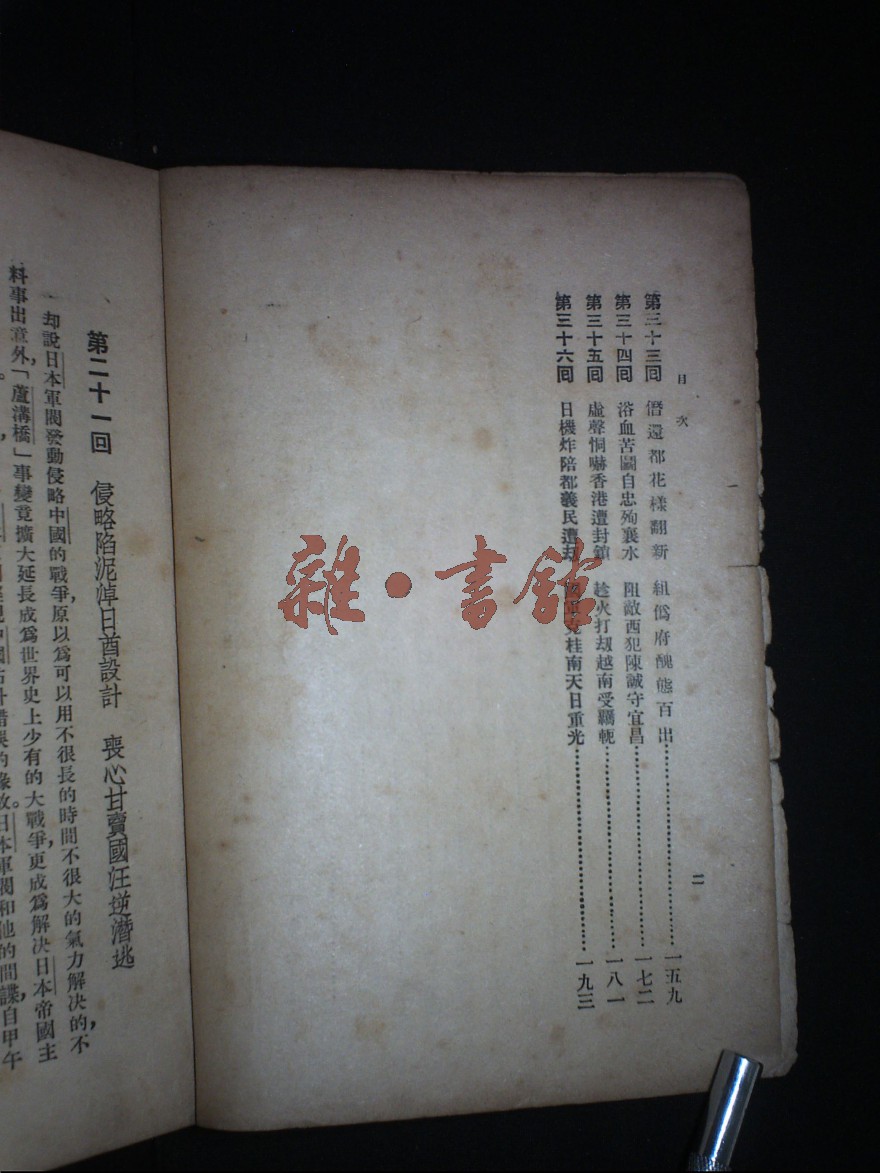 目次
第三十三回 僭還都花樣翻新 組僞府醜態百出 一五九
第三十四回 浴血苦鬭自忠殉襄水 阻敵西犯陳誠守宜昌 一七二
第三十五回 虛聲恫嚇香港遭封鎖 趁火打劫越南受羈軛 一八一
第三十六回 日機炸陪都義民遭劫 克桂南天日重光 一九三
二
雜·書館
第二十一回 侵略陷泥淖日酋設計 喪心甘賣國汪逆潛逃
却說日本軍閥發動侵略中國的戰爭,原以爲可以用不很長的時間不很大的氣力解决的,不
料事出意外,「蘆溝橋」事變竟擴大延長成爲世界史上少有的大戰爭,更成爲解决日本帝國主
日本軍閥和他的間諜,自甲午